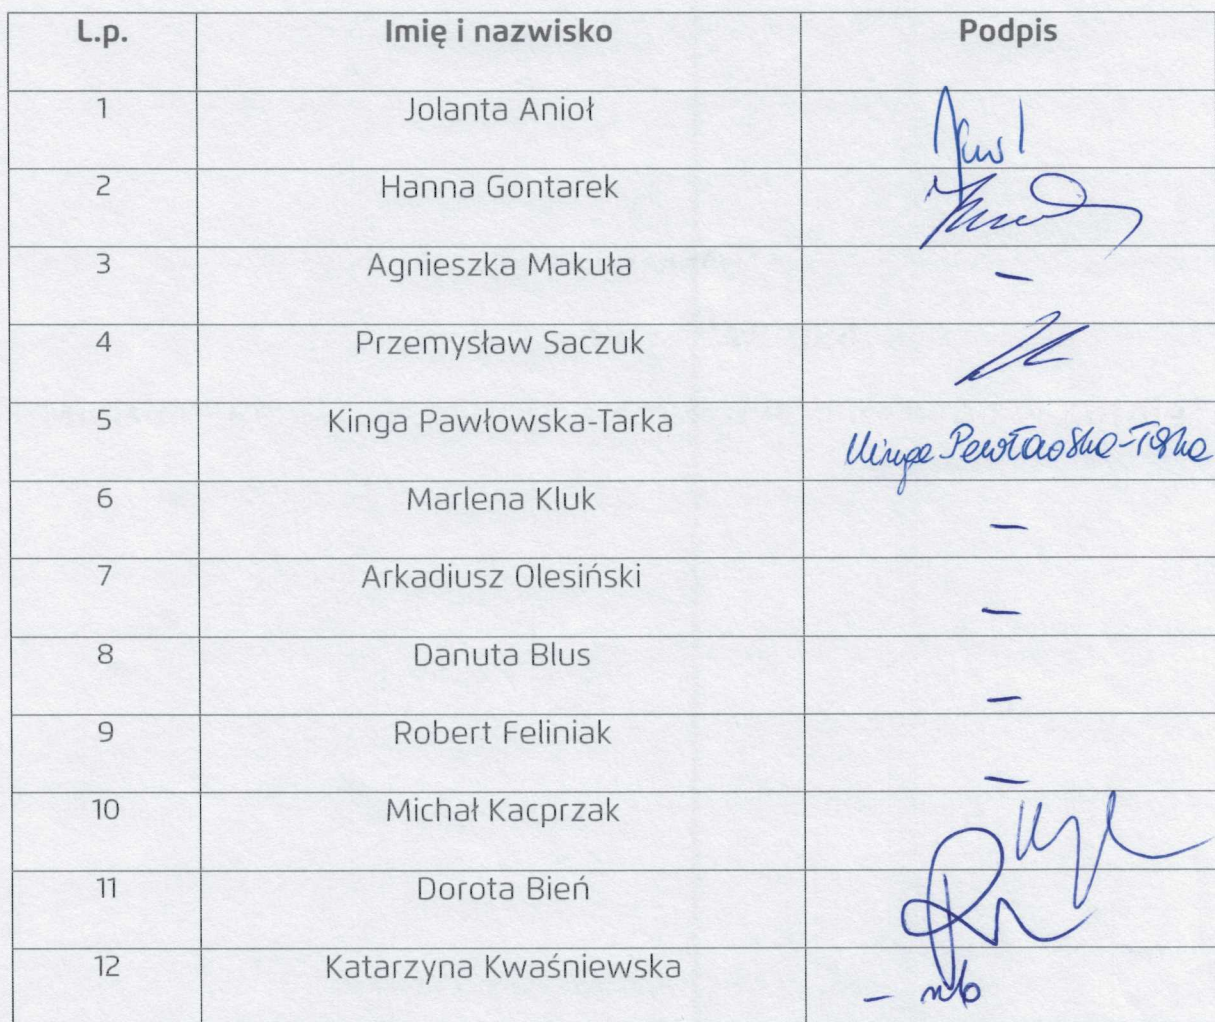 L.p. Imię i nazwisko Podpis
1 Jolanta Anioł
2 Hanna Gontarek
3 Agnieszka Makuła –
4 Przemysław Saczuk
5 Kinga Pawłowska-Tarka Kinga Pawłowska-Tarka
6 Marlena Kluk –
7 Arkadiusz Olesiński –
8 Danuta Blus –
9 Robert Feliniak –
10 Michał Kacprzak
11 Dorota Bień
12 Katarzyna Kwaśniewska – nb